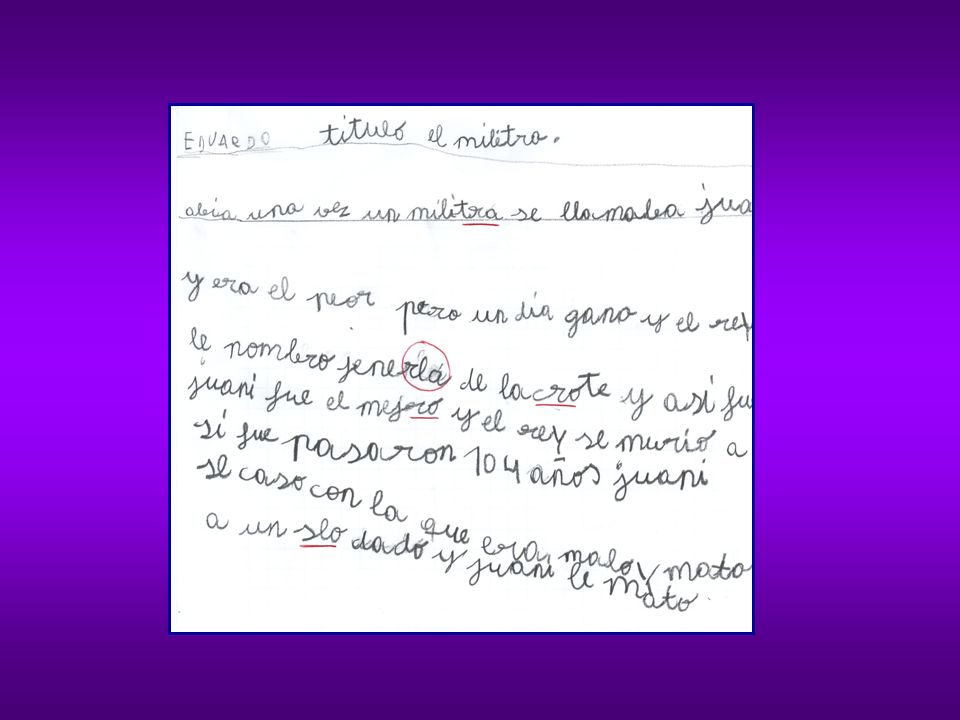 EDUARDO titulo el militro.
abia una vez un militra se llamaba jua
y era el peor pero un dia gano y el rey
le nombro jenerla de la crote y asi fu
juani fue el mejro y el rey se murio a
si fue pasaron 104 años juani
se caso con la que era malo y mato
a un slo dado y juani le mato.